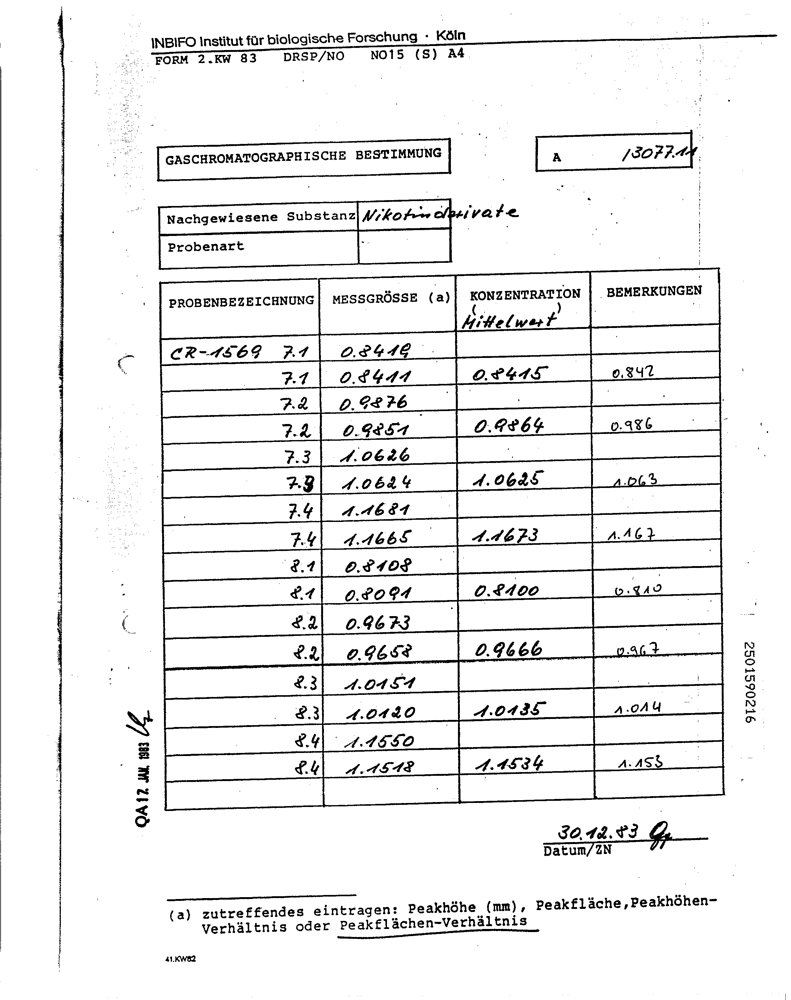 INBIFO Institut für biologische Forschung · Köln
FORM 2.KW 83 DRSP/NO NO15 (S) A4
GASCHROMATOGRAPHISCHE BESTIMMUNG
A 13077.11
Nachgewiesene Substanz Nikotinderivate
Probenart
PROBENBEZEICHNUNG MESSGRÖSSE (a) KONZENTRATION (Mittelwert) BEMERKUNGEN
CR-1569 7.1 0.8419
7.1 0.8411 0.8415 0.842
7.2 0.9876
7.2 0.9851 0.9864 0.986
7.3 1.0626
7.3 1.0624 1.0625 1.063
7.4 1.1681
7.4 1.1665 1.1673 1.167
8.1 0.8108
8.1 0.8091 0.8100 0.810
8.2 0.9673
8.2 0.9658 0.9666 0.967
8.3 1.0151
8.3 1.0120 1.0135 1.014
8.4 1.1550
8.4 1.1518 1.1534 1.153
2501590216
QA 17. JAN. 1983
30.12.83
Datum/ZN
(a) zutreffendes eintragen: Peakhöhe (mm), Peakfläche,Peakhöhen-
Verhältnis oder Peakflächen-Verhältnis
41.KW82